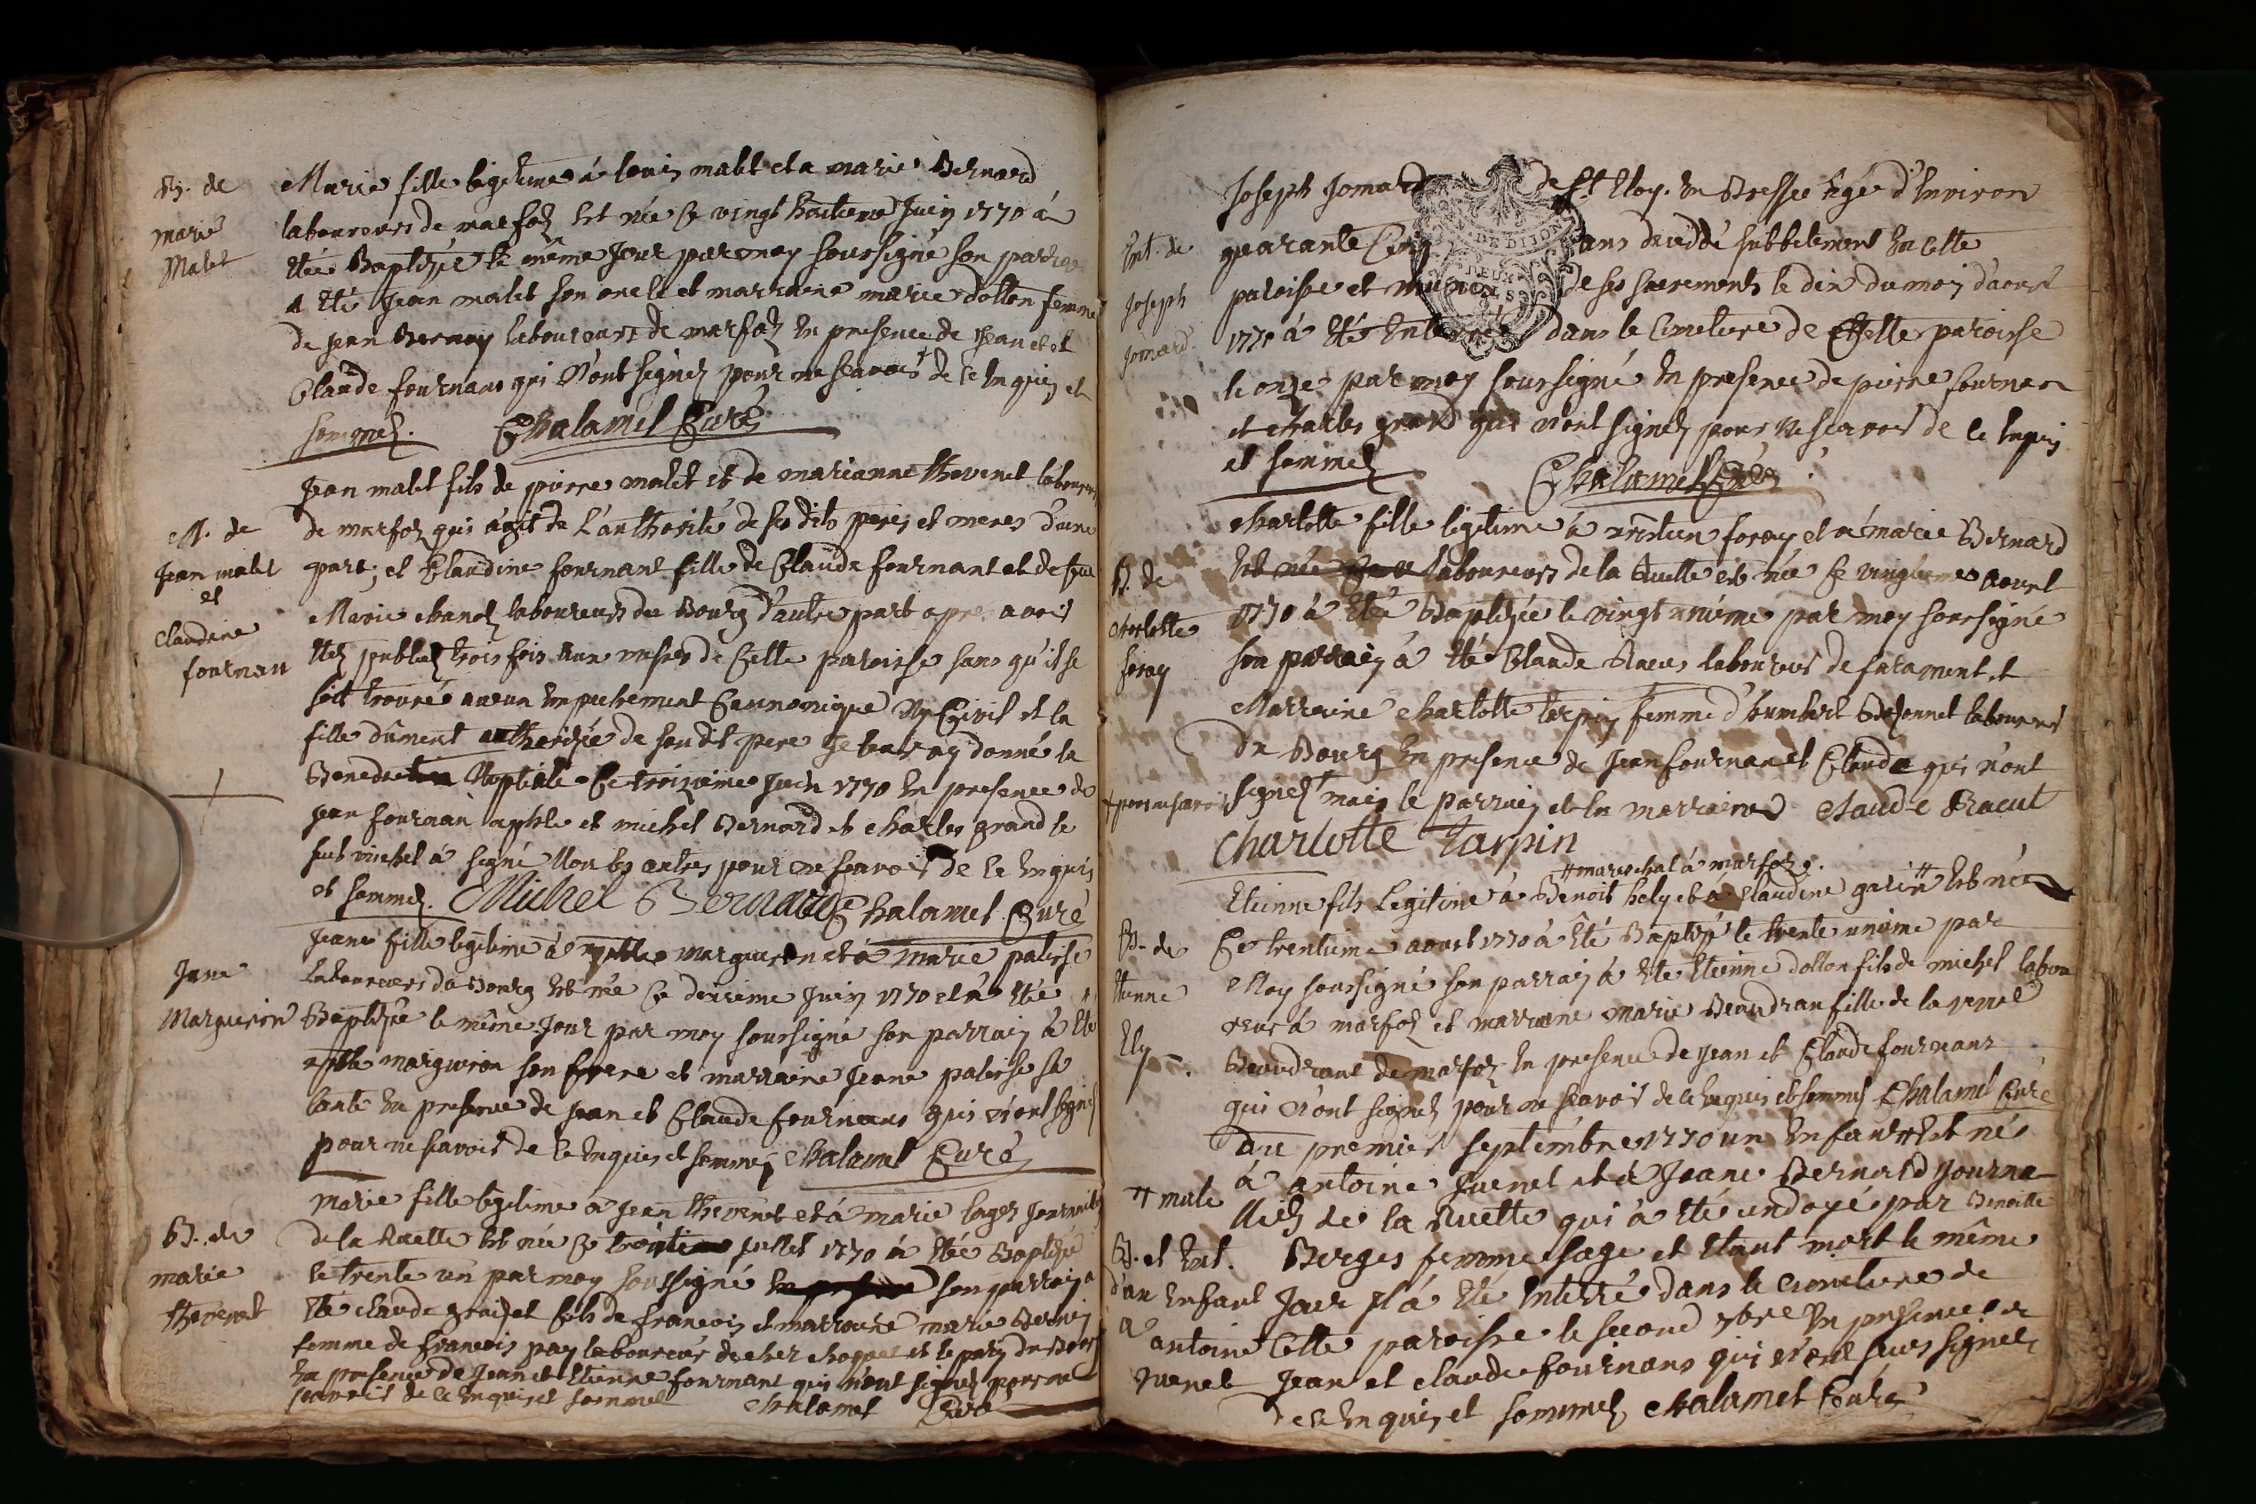 B. de
marie
Malet
Marie fille legitime à louis malet et a marie Bernard
laboureurs de marfoz est née ce vingt huitieme Juin 1770 à
étée Baptizée le même Jour par moy soussigné son parrain
a été Jean malet son oncle et marraine marie dollon femme
de jean Bernay laboureurs de marfoz en presence de Jean et et
Claude fournans qui n'ont signez pour ne scavoir de ce enquis et
sommez. Chalamel Curé
M. de
Jean malet
et
Claudine
fournan
Jean malet fils de pierre malet et de marianne thevenet laboureurs
de marfoz qui agit de l'authorité de ses dits peres et meres d'une
part; et Claudine fournant fille de Claude fournant et de feue
Marie chanel laboureurs du Bourg d'autre part apres avoir
étez publiez trois fois aux messes de Cette paroisse sans qu'il se
soit trouvé aucun empechement Cannonique Ny Civil et la
fille dûment autherizée de son dit pere je leur ay donné la
Benediction Nuptiale Ce troizieme juin 1770 en presence de
jean fournan et michel Bernard et charles grand le
seul michel à signé Non les autres pour ne scavoir de ce enquis
et sommez. Michel Bernard Chalamel Curé
Jeane
Margueron
Jeane fille legitime à margueron et à marie palisse
laboureurs du Bourg est née ce deuxieme Juin 1770 et à étée
Baptizée le même Jour par moy soussigné son parrain à été
margueron son frere et marraine Jeane palisse sa
tante en presence de jean et Claude fournans qui n'ont signez
pour ne scavoir de ce enquis et sommez Chalamel Curé
B. de
marie
thevenet
Marie fille legitime à jean thevenet et à marie loges journaliers
de la Ruette est née ce trentieme juillet 1770 à étée Baptizée
le trente un par moy soussigné son parrain a
été claude fils de francois et marraine marie Bernis
femme de francois pay laboureurs de chez chappel et le parr. du Bourg
en presence de jean et Etienne fournant qui n'ont signez pour ne
scavoir de ce enquis et sommez Chalamel Curé
Ent. de
Joseph
Jomard
Joseph Jomard de St. Eloy en Bresse âgé d'Environ
quarante Cinq ans decedé subbitement en Cette
paroisse et muni de ses sacrements le dix du moi d'aoust
1770 à été Enterré dans le Cimetiere de Cette paroisse
le onze par moy soussigné En presence de pierre fournan
et charles grand qui n'ont signez pour ne scavoir de ce enquis
et sommez Chalamel Curé
DE DIJON
DEUX
B. de
charlotte
foray
Charlotte fille legitime à foray et à marie Bernard
est née ce laboureurs de la Ruette est née ce vingtieme aoust
1770 à étée Baptizée le vingt unième par moy soussigné
son parrain à été Claude Racus laboureur de faramant et
Marraine charlotte tarpin femme d'humbert Bezonnet laboureurs
Du Bourg En presence de Jean fournan et Claude qui n'ont
+ pour ne scavoir
signez + mais le parrain et la marraine Claude Racut
Charlotte Tarpin
B. de
Etienne
Ely
# mareschal à marfoz.
Etienne fils legitime à Benoit hely et à Claudine garin # est né
Ce trentieme aoust 1770 à été Baptizé le trente unieme par
Moy soussigné son parrain à été Etienne dollon fils de michel labou
reur à marfoz et marraine Marie Beaudran fille de
Beaudrans de marfoz En presence de Jean et Claude fournans
qui n'ont signez pour ne scavoir de ce enquis et sommez Chalamel Curé
# male
B. et Ent.
d'un Enfant
a
antoine
Juenet
Du premier septembre 1770 un Enfant # est né
à antoine Juenet et à Jeane Bernard Journa-
lliers de la Ruette qui à été ondoyé par Benoitte
Berges femme sage et étant mort le même
Jour il à été Enterré dans le Cimetiere de
Cette paroisse le second 7bre En presence de
Jean et Claude fournans qui n'ont signez
de ce enquis et sommez Chalamel Curé